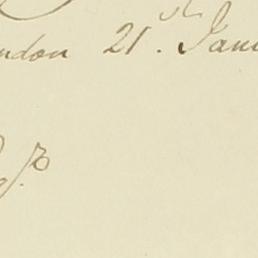 ndon 21st. Janu